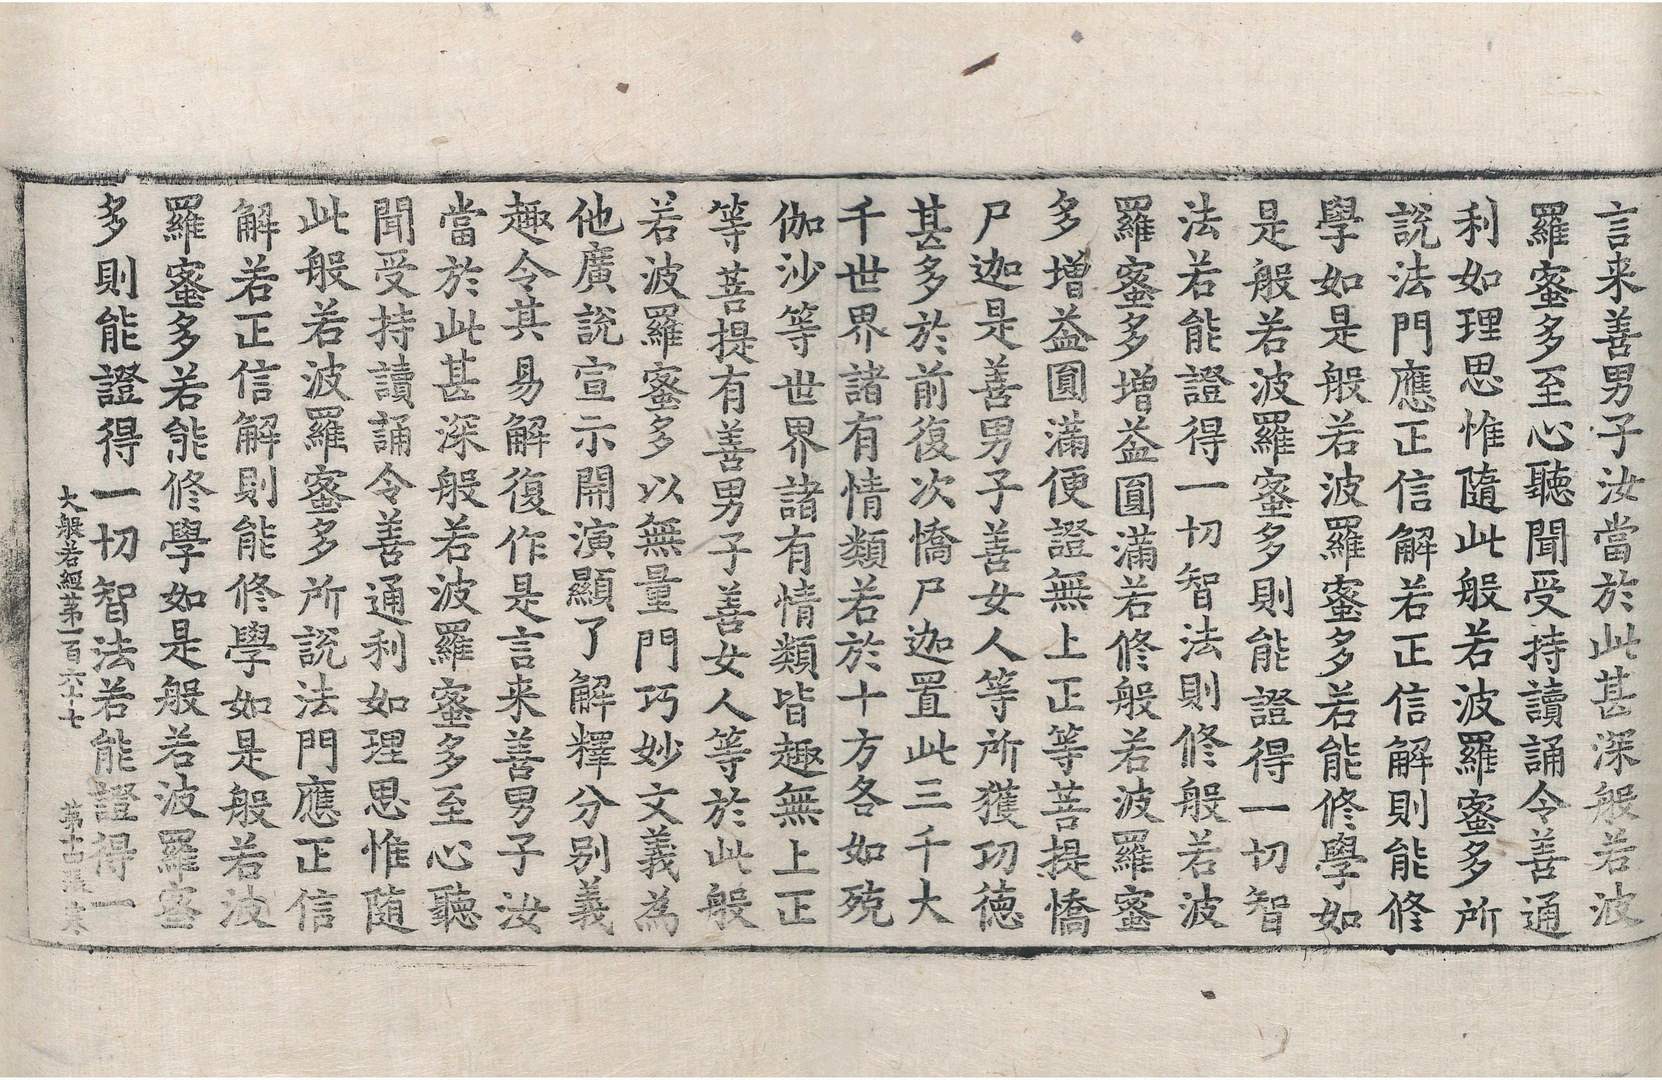 言来善男子汝當於此甚深般若波
羅蜜多至心聽聞受持讀誦令善通
利如理思惟隨此般若波羅蜜多所
說法門應正信解若正信解則能修
學如是般若波羅蜜多若能修學如
是般若波羅蜜多則能證得一切智
法若能證得一切智法則修般若波
羅蜜多增益圓滿若修般若波羅蜜
多增益圓滿便證無上正等菩提憍
尸迦是善男子善女人等所獲功德
甚多於前復次憍尸迦置此三千大
千世界諸有情類若於十方各如殑
伽沙等世界諸有情類皆趣無上正
等菩提有善男子善女人等於此般
若波羅蜜多以無量門巧妙文義為
他廣說宣示開演顯了解釋分別義
趣令其易解復作是言来善男子汝
當於此甚深般若波羅蜜多至心聽
聞受持讀誦令善通利如理思惟隨
此般若波羅蜜多所說法門應正信
解若正信解則能修學如是般若波
羅蜜多若能修學如是般若波羅蜜
多則能證得一切智法若能證得一
大般若經第一百六十七 第十四張 寒